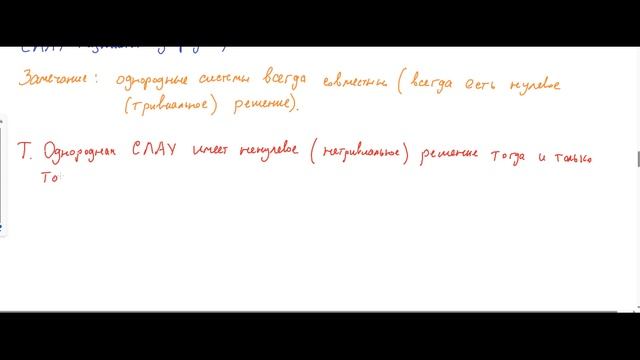 СЛАУ
Замечание: однородные системы всегда совместны (всегда есть нулевое
(тривиальное) решение).
Т. Однородная СЛАУ имеет ненулевое (нетривиальное) решение тогда и только
то